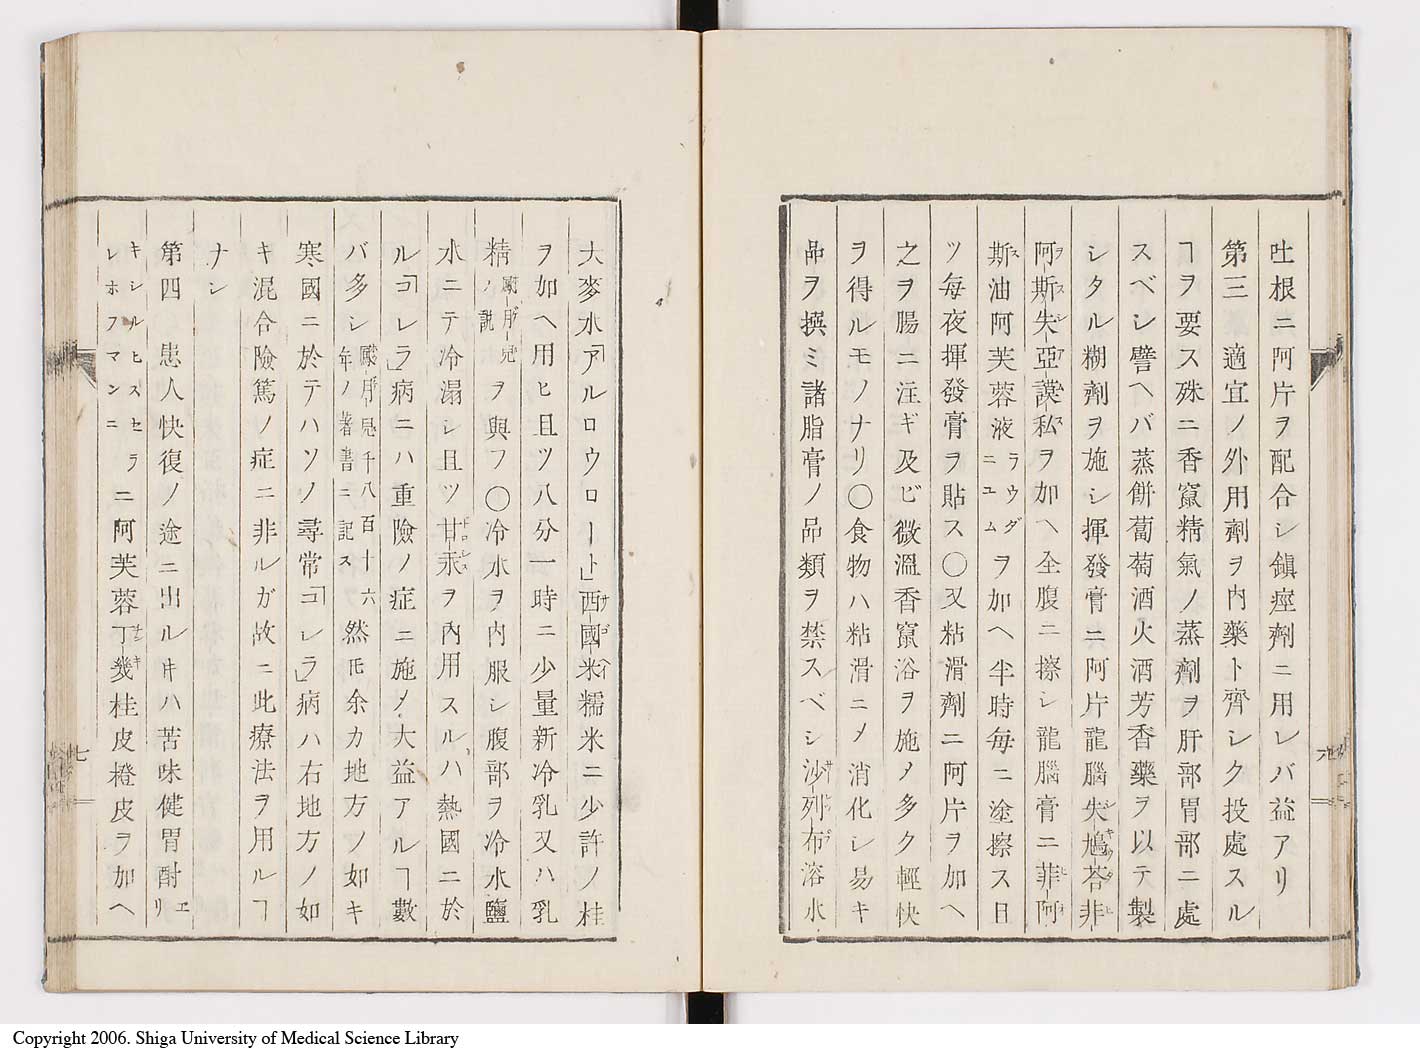 吐根ニ阿片ヲ配合シ鎮痙劑ニ用レバ益アリ
第三適宜ノ外用劑ヲ内藥ト齊シク投處スル
ヿヲ要ス殊ニ香竄精氣ノ蒸劑ヲ肝部胃部ニ處
スベシ譬ヘバ蒸餅葡萄酒火酒芳香藥ヲ以テ製
シタル糊劑ヲ施シ揮發膏ニ阿片龍腦失鳩荅非
阿斯失亞謨私ヲ加ヘ全腹ニ擦シ龍腦膏ニ菲阿
斯油阿芙蓉液ラウダニユムヲ加ヘ半時毎ニ塗擦ス日
ツ毎夜揮發膏ヲ貼ス〇又粘滑劑ニ阿片ヲ加ヘ
之ヲ腸ニ注ギ及ビ微溫香竄浴ヲ施メ多ク輕快
ヲ得ルモノナリ〇食物ハ粘滑ニメ消化シ易キ
品ヲ撰ミ諸脂膏ノ品類ヲ禁スベシ沙列布溶水
大麥水「アルロウロート」西國米糯米ニ少許ノ桂
ヲ如ヘ用ヒ且ツ八分一時ニ少量新冷乳又ハ乳
精ノ説ヲ與フ〇冷水ヲ内服シ腹部ヲ冷水鹽
水ニテ冷溻シ且ツ甘汞ヲ内用スルハ熱國ニ於
ル「コレラ」病ニハ重險ノ症ニ施メ大益アルヿ數
バ多シ千八百十六年ノ著書ニ記ス然𪜈余カ地方ノ如キ
寒國ニ於テハソノ尋常「コレラ」病ハ右地方ノ如
キ混合險篤ノ症ニ非ルガ故ニ此療法ヲ用ルヿ
ナシ
第四患人快復ノ途ニ出ルキハ苦味健胃酎エリ
キシルヒスセラレホフマンニニ阿芙蓉丁幾桂皮橙皮ヲ加ヘ